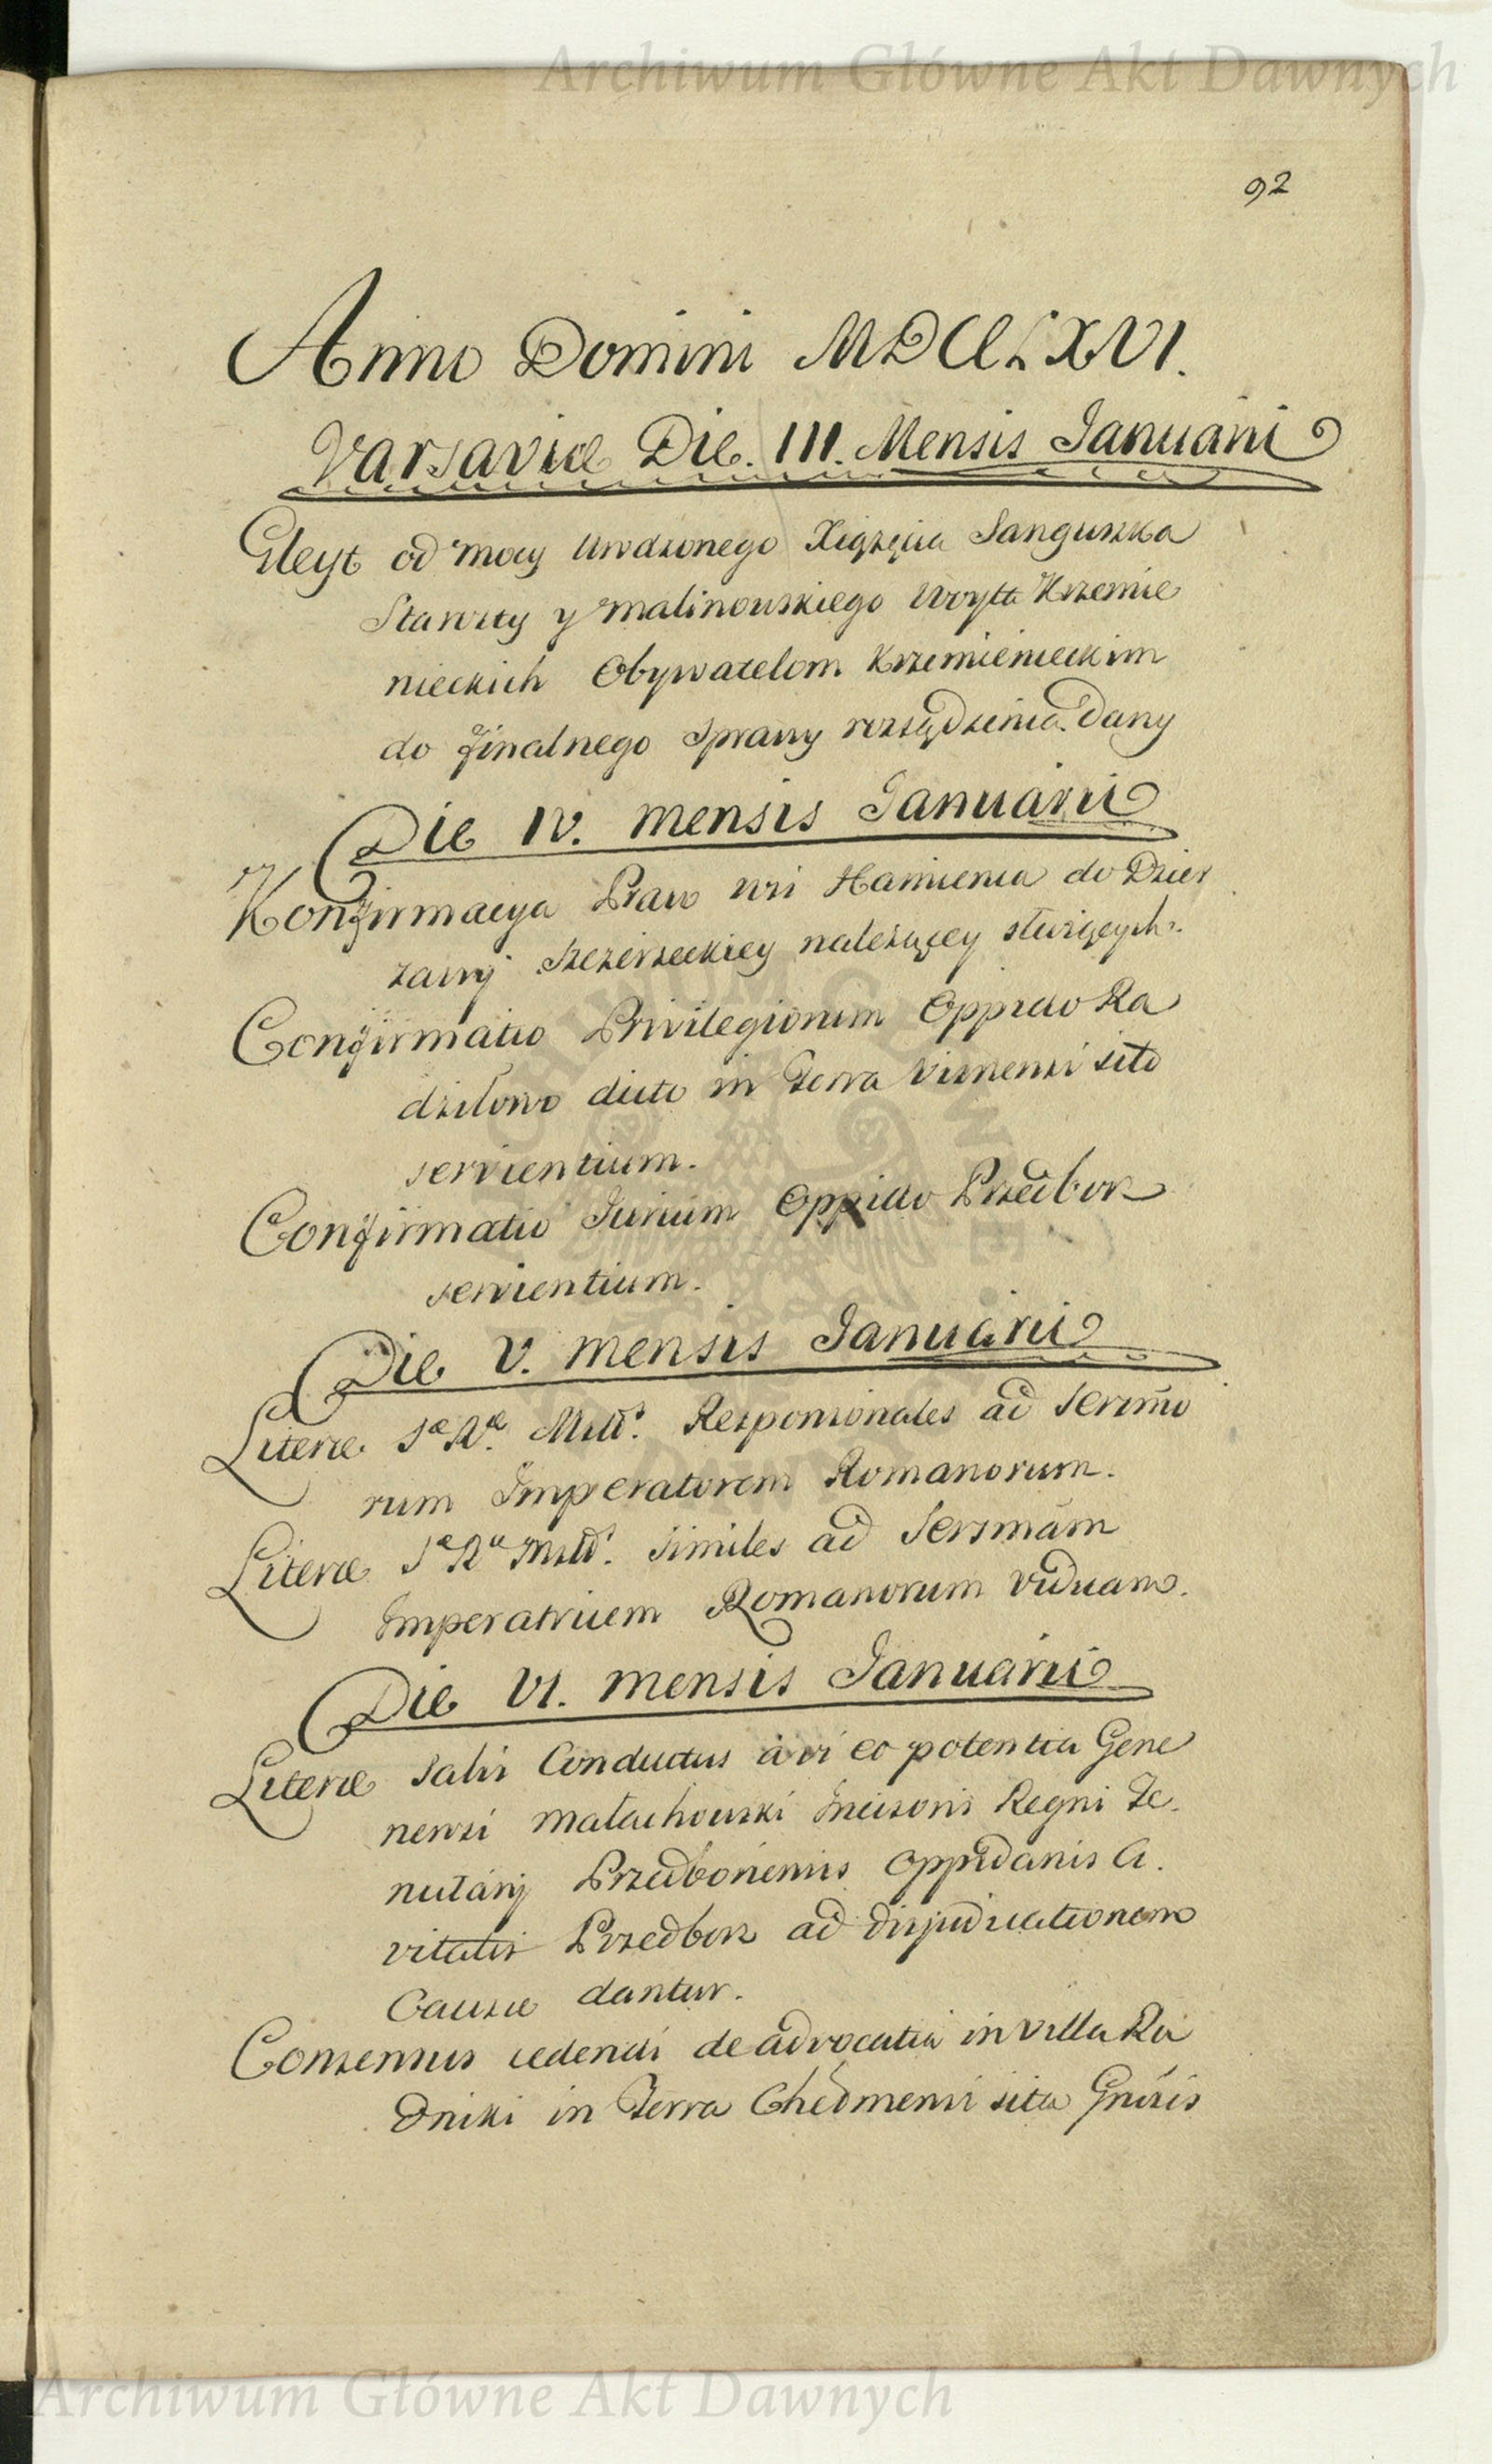 Archiwum Główne Akt Dawnych
92
Anno Domini MDCCLXVI.
Varsaviæ Die. III. Mensis Januarii
Gleyt od mocy Urodzonego Xiążęcia Sanguszka
Starosty y Malinowskiego Woyta Krzemie
nieckich Obywatelom Krzemienieckim
do finalnego Sprawy rozsądzenia. Dany
Die IV. mensis Januarii
Konfirmacya Praw wsi Kamienia do Dzier
zawy Szczerzeckiey należącey służących.
Confirmatio Privilegiorum Oppido Ra
dziłowo dicto in Terra Visnensi sito
servientium.
Confirmatio Jurium Oppido Przedborz
servientium.
Die V. mensis Januarii
Literæ Sæ Ræ Mttis. Responsionales ad Serenmo
rum Imperatorem Romanorum.
Literæ Sæ Ræ Mttis. similes ad Sersmam
Imperatricem Romanorum viduam.
Die VI. mensis Januarii
Literæ Salvi Conductus à vi et potentia Gene
nerosi Małachowski Incisoris Regni Te.
nutarij Przedboriensis Oppidanis Ci.
vitatis Przedborz ad disjudicationem
Causæ dantur.
Consensus cedendi de advocatia in villa Ru
dniki in Terra Chełmensi sita Gnosis
Archiwum Główne Akt Dawnych